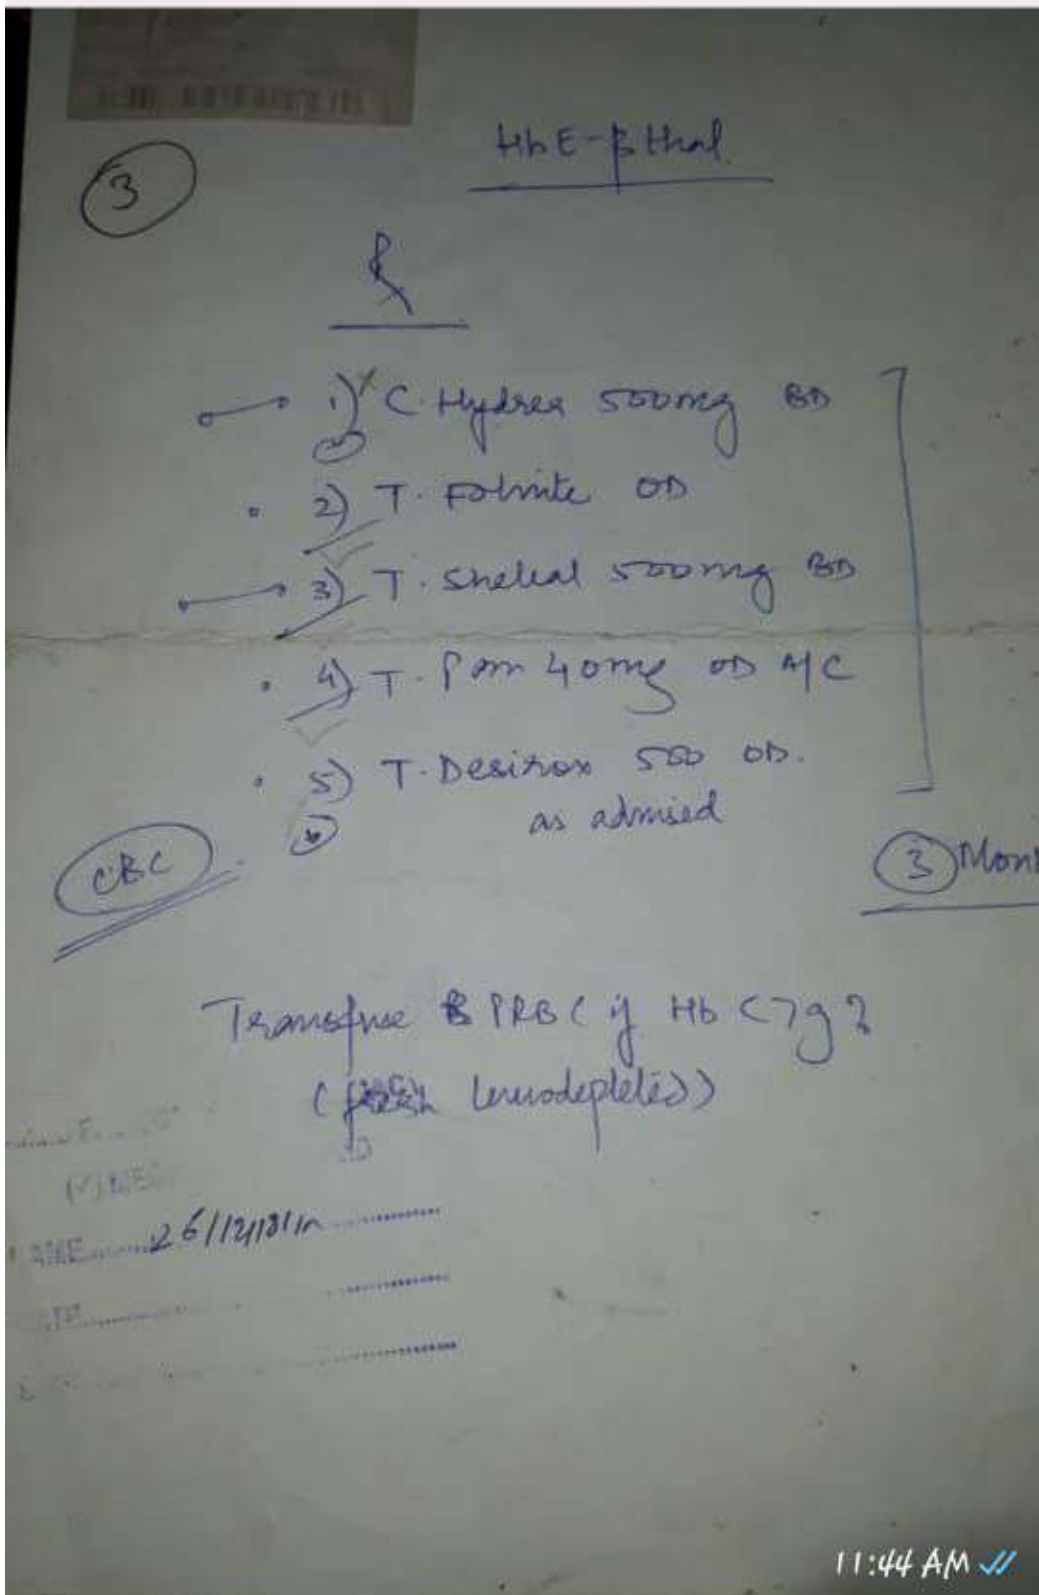 HbE-β thal.
3
℞
1) C. Hydrea 500mg BD
2) T. Folvite OD
3) T. Shelcal 500mg BD
4) T. Pan 40mg OD A/C
5) T. Desirox 500 OD.
as advised
CBC
3 Mon
Transfuse PRBC if Hb <7g?
(fresh leucodepleted)
AME 26/12/18
11:44 AM